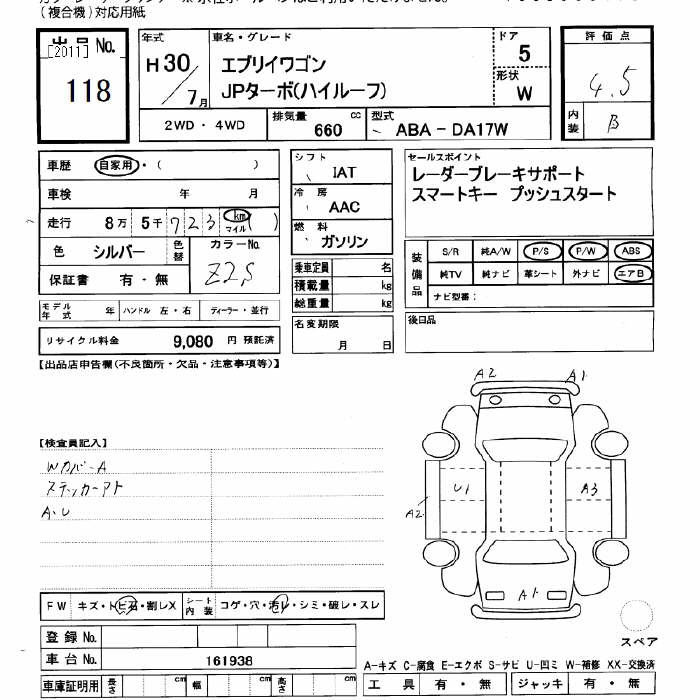 (複合機)対応用紙
出品No.
[2011]
118
年式
H30/7月
車名・グレード
エブリイワゴン
JPターボ(ハイルーフ)
ドア
5
形状
W
評価点
4.5
内装
B
2WD・4WD
排気量
660 cc
型式
ABA-DA17W
車歴 自家用・( )
車検 年 月
走行 8万 5千 723 km マイル ( )
色 シルバー
色替
カラーNo.
Z2S
保証書 有・無
シフト
IAT
冷房
AAC
燃料
ガソリン
乗車定員 名
積載量 kg
総重量 kg
セールスポイント
レーダーブレーキサポート
スマートキー プッシュスタート
装備品
S/R 純A/W P/S P/W ABS
純TV 純ナビ 革シート 外ナビ エアB
ナビ型番:
モデル年式 年 ハンドル 左・右 ディーラー・並行
リサイクル料金 9,080 円 預託済
名変期限
月 日
後日品
【出品店申告欄(不良箇所・欠品・注意事項等)】
A2 A1
【検査員記入】
Wカバー A
ステッカーアト
A・U
U1 A3
A2
A1
FW キズ・トビ石・割レX
シート内装 コゲ・穴・汚レ・シミ・破レ・スレ
登録No.
車台No. 161938
スペア
A-キズ C-腐食 E-エクボ S-サビ U-凹ミ W-補修 XX-交換済
車庫証明用 長さ cm 幅 cm 高さ cm
工具 有・無 ジャッキ 有・無